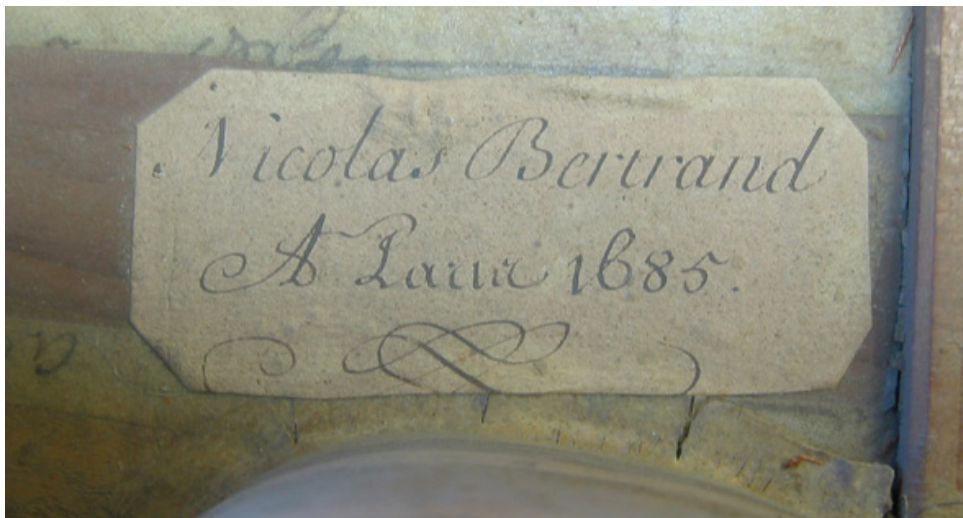 Nicolas Bertrand
A Paris 1685.